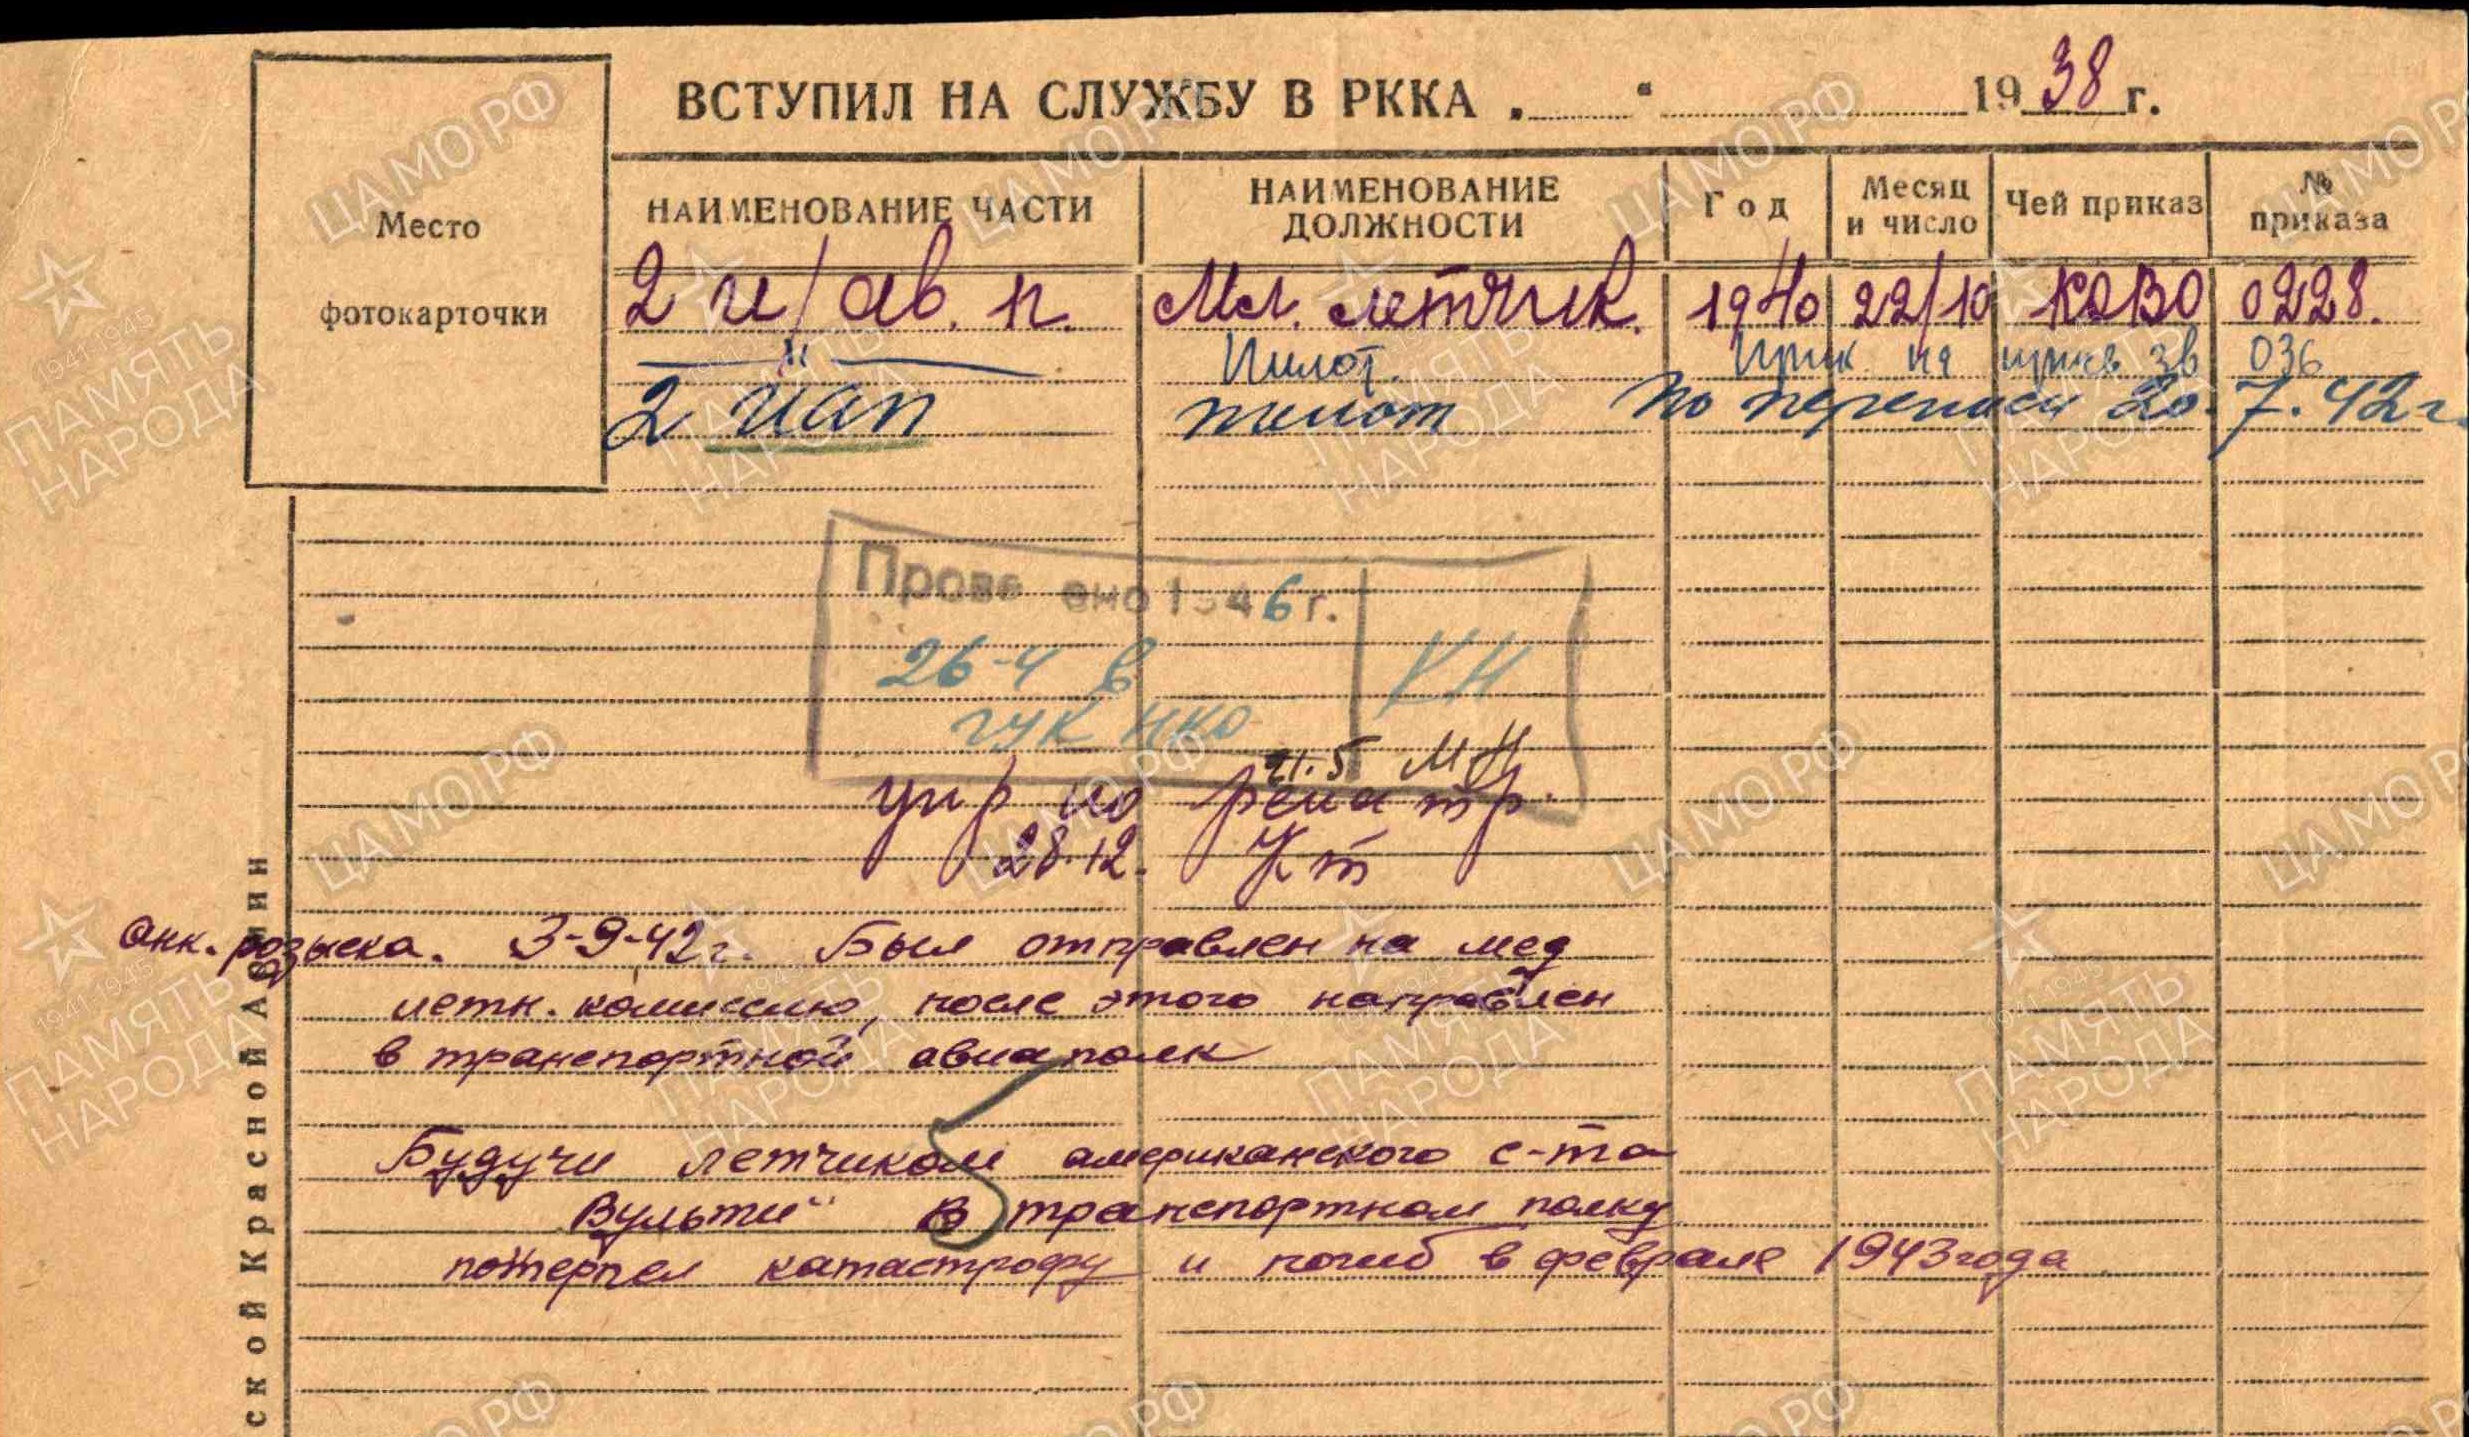 ВСТУПИЛ НА СЛУЖБУ В РККА " " 1938 г.
Место фотокарточки
НАИМЕНОВАНИЕ ЧАСТИ НАИМЕНОВАНИЕ ДОЛЖНОСТИ Год Месяц и число Чей приказ № приказа
2 и/ав. п. Мл. летчик. 1940 22/10 КОВО 0228.
—"— Пилот. 036
2 иап пилот по переписи 20.7.42 г.
Прове ено 1946 г.
26-4 в КН
ГУК НКО
21.5 МН
упр по
28.12.
анк. розыска. 3-9-42 г. Был отправлен на мед
летн. комиссию, после этого направлен
в транспортной авиаполк
Будучи летчиком американского с-та
Вульти" в транспортном полку
потерпел катастрофу и погиб в феврале 1943 года
ской Красной Армии
ЦАМО РФ
1941-1945
ПАМЯТЬ НАРОДА